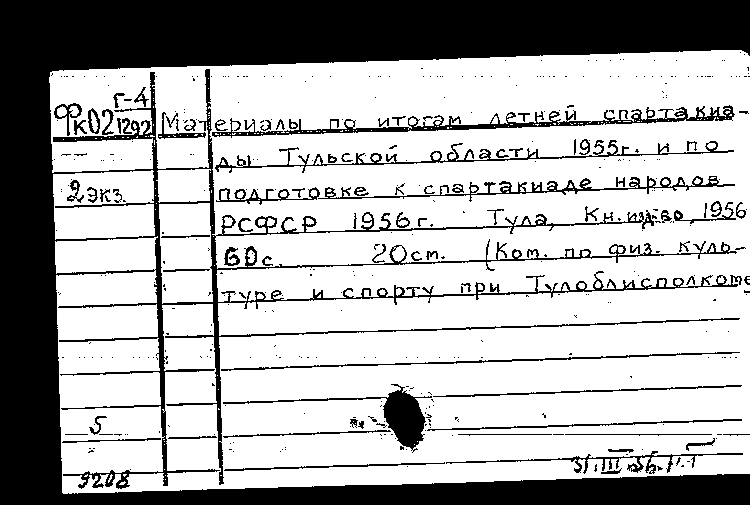 Г-4
ФК02 1292 Материалы по итогам летней спартакиа-
ды Тульской области 1955г. и по
2 экз. подготовке к спартакиаде народов
РСФСР 1956г. Тула, Кн. изд-во, 1956
60с. 20см. (Ком. по физ. куль-
туре и спорту при Тулоблисполкоме
5
9208